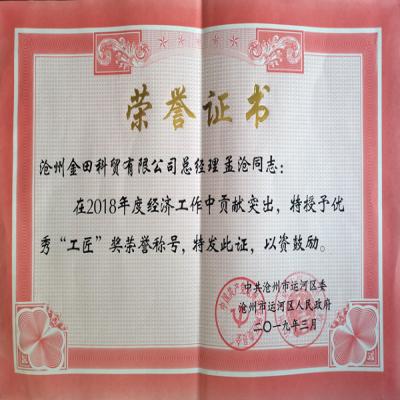 荣誉证书
沧州金田科贸有限公司总经理孟沧同志：
在2018年度经济工作中贡献突出，特授予优
秀“工匠”奖荣誉称号，特发此证，以资鼓励。
中共沧州市运河区委
沧州市运河区人民政府
二〇一九年三月